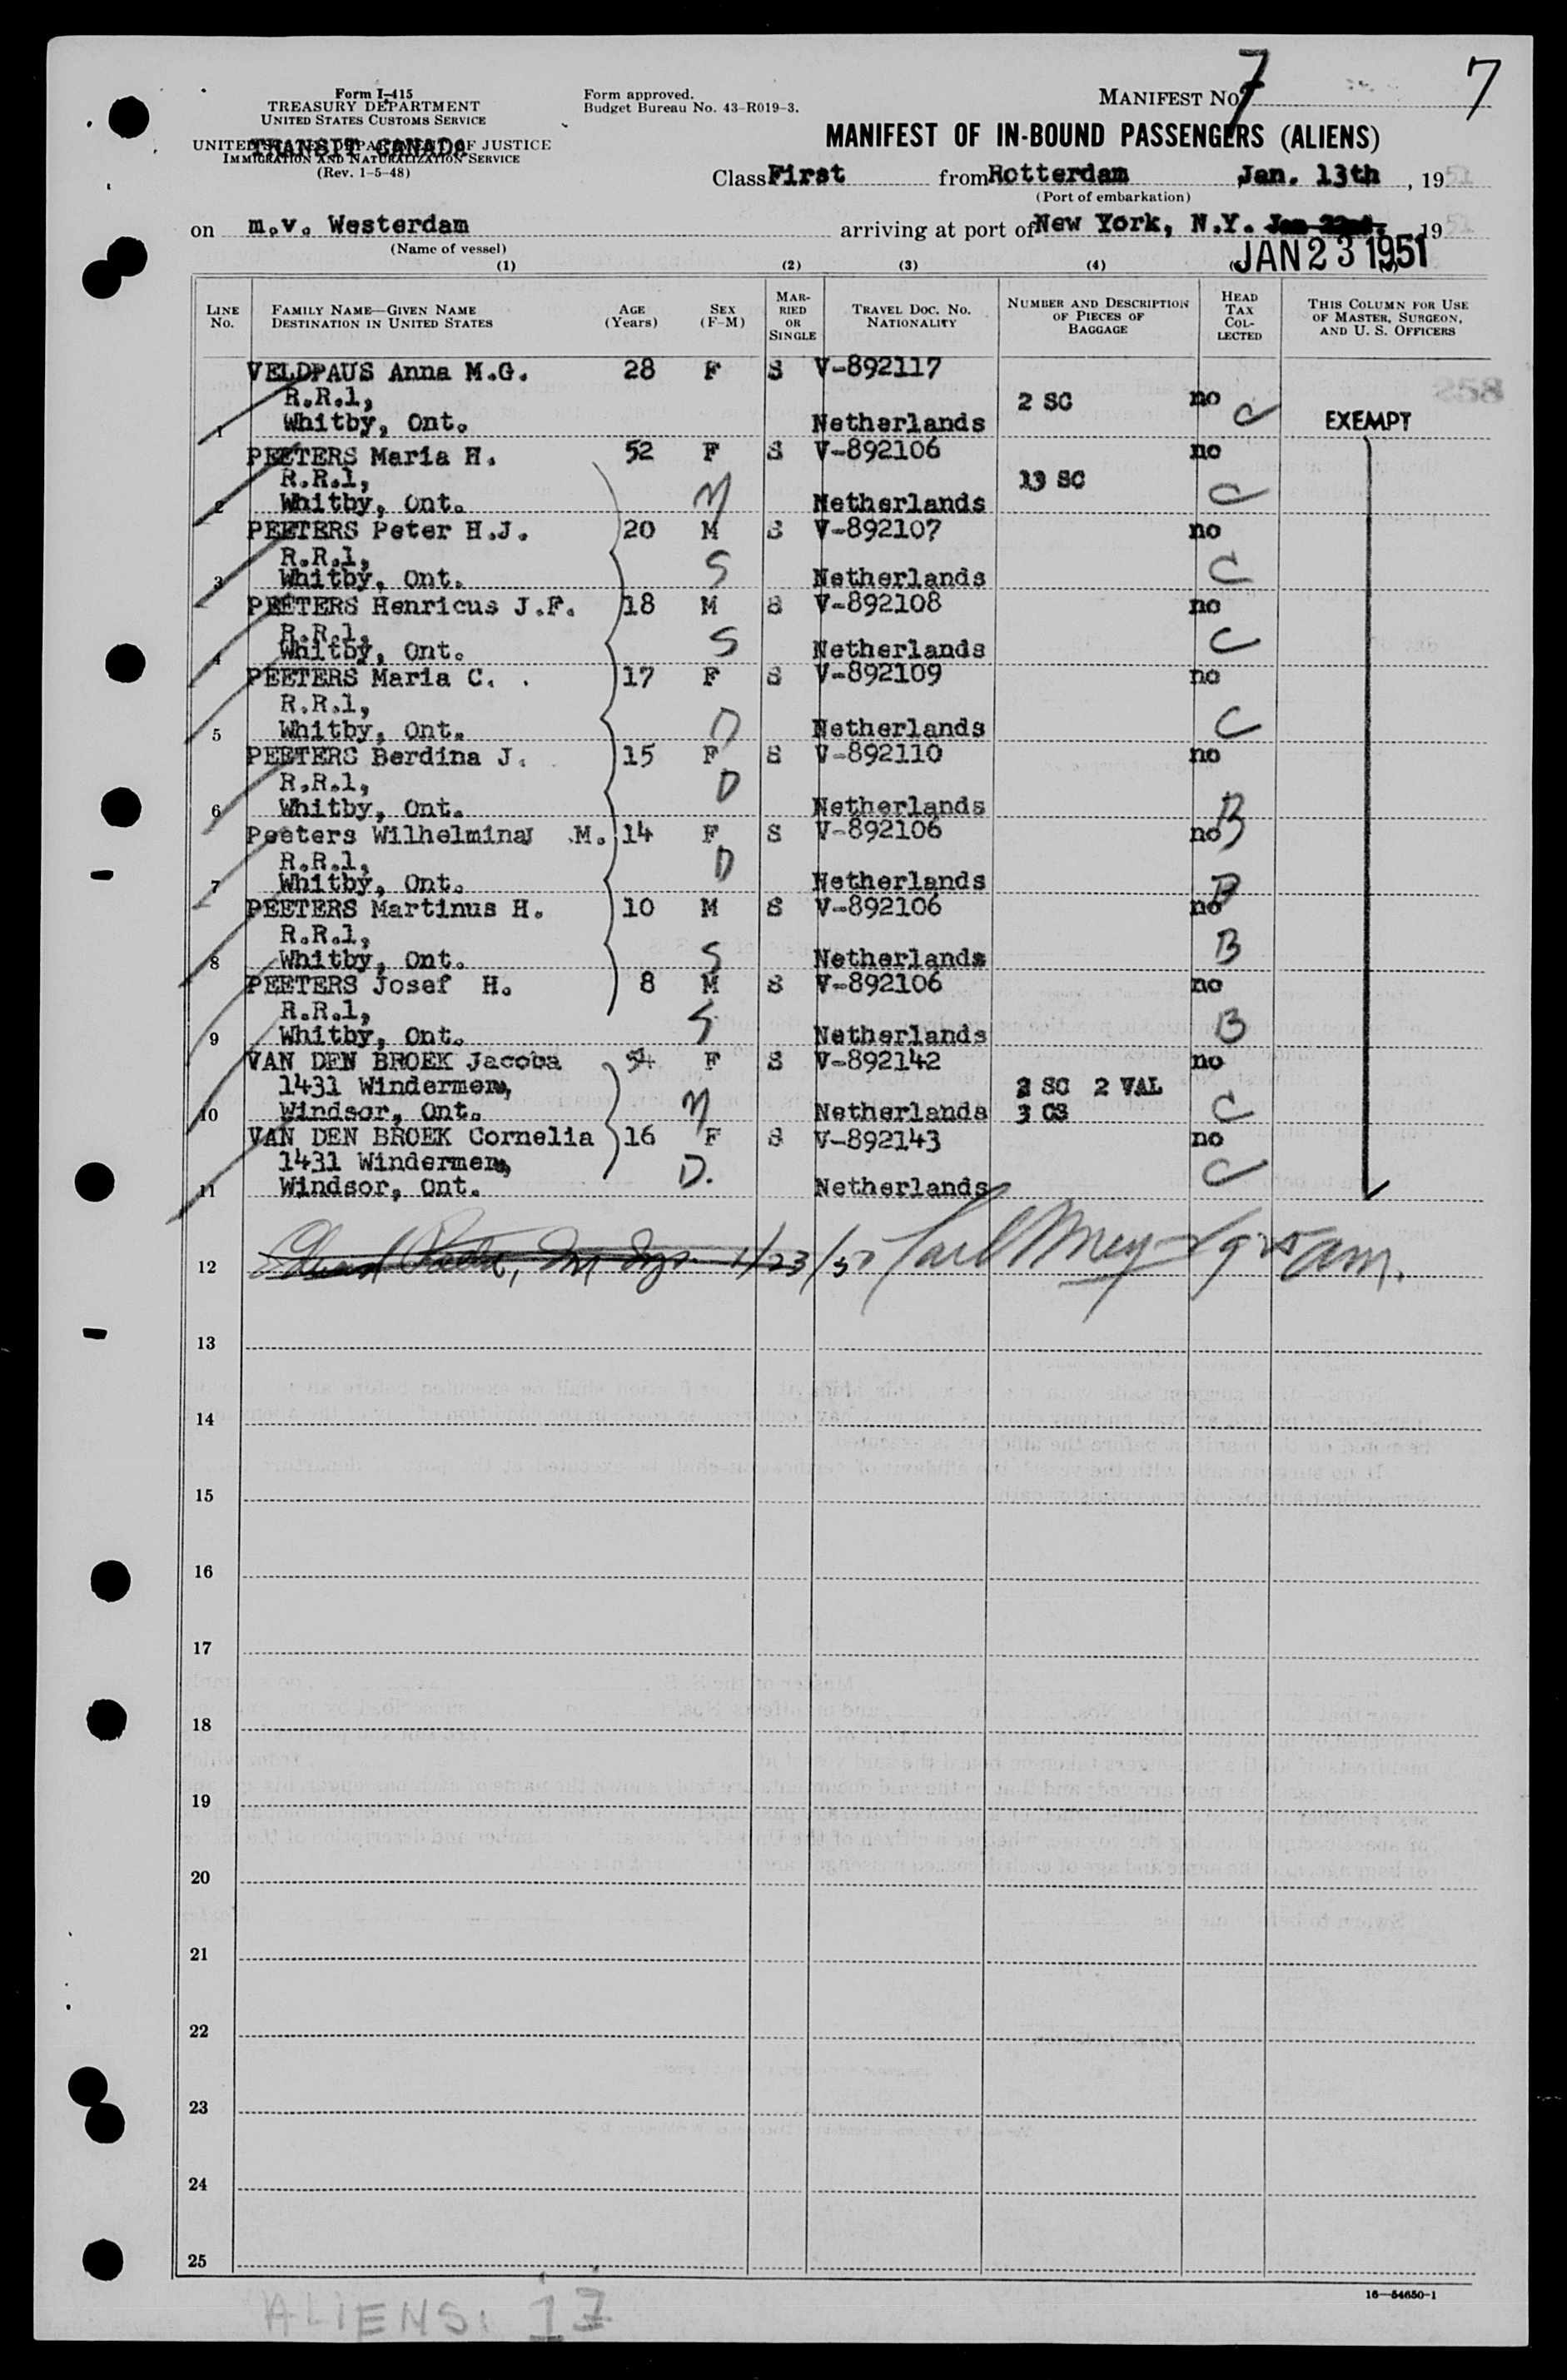 Form I-415
TREASURY DEPARTMENT
UNITED STATES CUSTOMS SERVICE
UNITED STATES DEPARTMENT OF JUSTICE
TRANSIT CANADA
IMMIGRATION AND NATURALIZATION SERVICE
(Rev. 1-5-48)
Form approved.
Budget Bureau No. 43-R019-3.
MANIFEST No. 7
7
MANIFEST OF IN-BOUND PASSENGERS (ALIENS)
Class First from Rotterdam Jan. 13th, 1951
(Port of embarkation)
on m.v. Westerdam arriving at port of New York, N.Y. Jan 22nd. 1951
(Name of vessel)
JAN 23 1951
(1) (2) (3) (4)
LINE No. FAMILY NAME—GIVEN NAME DESTINATION IN UNITED STATES AGE (Years) SEX (F-M) MARRIED OR SINGLE TRAVEL DOC. NO. NATIONALITY NUMBER AND DESCRIPTION OF PIECES OF BAGGAGE HEAD TAX COLLECTED THIS COLUMN FOR USE OF MASTER, SURGEON, AND U. S. OFFICERS
VELDPAUS Anna M.G. 28 F S V-892117
R.R.1, 2 SC no
1 Whitby, Ont. Netherlands C EXEMPT
PEETERS Maria H. 52 F S V-892106 no
R.R.1, 13 SC
2 Whitby, Ont. M Netherlands C
PEETERS Peter H.J. 20 M S V-892107 no
R.R.1,
3 Whitby, Ont. S Netherlands C
PEETERS Henricus J.F. 18 M S V-892108 no
R.R.1,
4 Whitby, Ont. S Netherlands C
PEETERS Maria C. 17 F S V-892109 no
R.R.1,
5 Whitby, Ont. D Netherlands C
PEETERS Berdina J. 15 F S V-892110 no
R.R.1,
6 Whitby, Ont. D Netherlands B
Peeters Wilhelmina J M. 14 F S V-892106 no
R.R.1,
7 Whitby, Ont. D Netherlands B
PEETERS Martinus H. 10 M S V-892106 no
R.R.1,
8 Whitby, Ont. S Netherlands B
PEETERS Josef H. 8 M S V-892106 no
R.R.1,
9 Whitby, Ont. S Netherlands B
VAN DEN BROEK Jacoba 54 F S V-892142 no
1431 Windermere, 2 SC 2 VAL
10 Windsor, Ont. M Netherlands 3 CS C
VAN DEN BROEK Cornelia 16 F S V-892143 no
1431 Windermere,
11 Windsor, Ont. D. Netherlands C
12 1/23/51
13
14
15
16
17
18
19
20
21
22
23
24
25
16—54650-1
ALIENS: 17